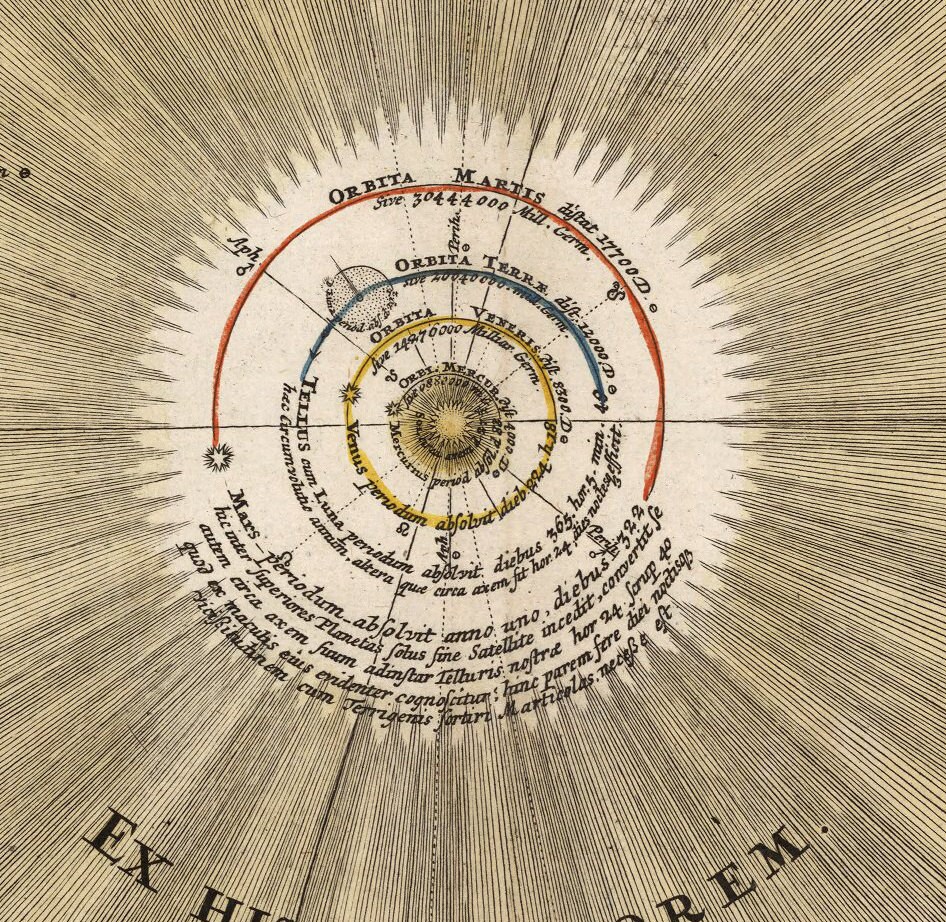 ORBITA MARTIS distat 17700 D.
sive 30444000 Mill. Germ.
Aph.
Perih.
ORBITA TERRÆ dist. 12000. D
sive
ORBITA VENERIS. dist 8300. D
sive 14276000 Milliar. Germ.
ORBI. MERCUR.
Mercurius period
Venus periodum absolvit dieb. 224. h. 18
Aph.
TELLUS cum Luna periodum absolvit diebus 365 hor. 5. min. 49
hæc circumvolutio annua, altera quæ circa axem fit hor. 24 dies
Perih.
Mars periodum absolvit anno uno, diebus 322
hic inter superiores Planetas solus sine Satellite incedit, convertit se
autem circa axem suum adinstar Telluris nostræ hor 24 scrup 40
quod ex maculis ejus evidenter cognoscitur; hinc parem fere diei noctisq3
vicissitudinem cum Terrigenis sortiri Marticolas necesse est
EX